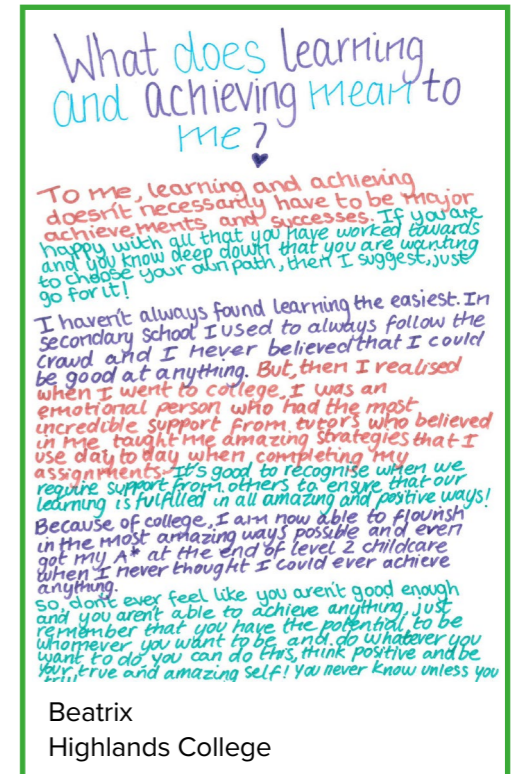 What does learning
and achieving mean to
me?
To me, learning and achieving
doesn't necessarily have to be major
achievements and successes. If you are
happy with all that you have worked towards
and you know deep down that you are wanting
to choose your own path, then I suggest, just
go for it!
I haven't always found learning the easiest. In
secondary school I used to always follow the
crowd and I never believed that I could
be good at anything. But, then I realised
when I went to college, I was an
emotional person who had the most
incredible support from tutors who believed
in me, taught me amazing strategies that I
use day to day when completing my
assignments. It's good to recognise when we
require support from others to ensure that our
learning is fulfilled in all amazing and positive ways!
Because of college, I am now able to flourish
in the most amazing ways possible and even
got my A* at the end of level 2 childcare
when I never thought I could ever achieve
anything.
So, don't ever feel like you aren't good enough
and you aren't able to achieve anything, just
remember that you have the potential to be
whomever you want to be and do whatever you
want to do, you can do this, think positive and be
your true and amazing self! You never know unless you
Beatrix
Highlands College